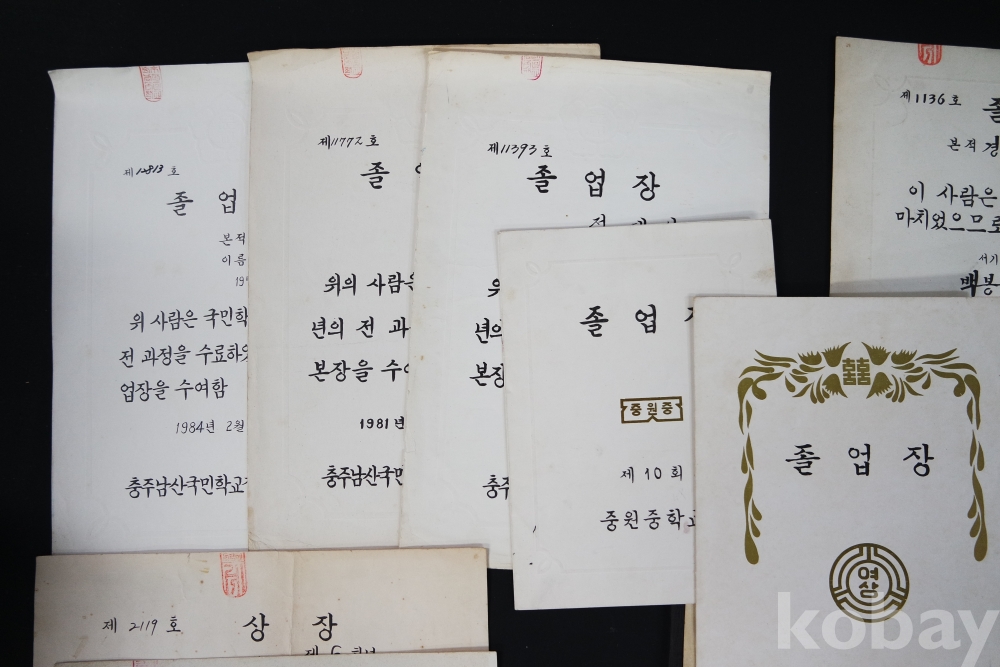 제12813호
졸 업
본적
이름
위 사람은 국민학
전 과정을 수료하
업장을 수여함
1984년 2월
충주남산국민학교
제11772호
졸
위의 사람은
년의 전 과
본장을 수
1981년
충주남산국민
제11393호
졸 업 장
위
년의
본장
충주
졸 업
중원중
제 10 회
중원중학교
제1136호
졸
본적 경
이 사람은
마치었으므로
서기
백봉
졸 업 장
여상
제 2119 호
상 장
제 6 학년
kobay